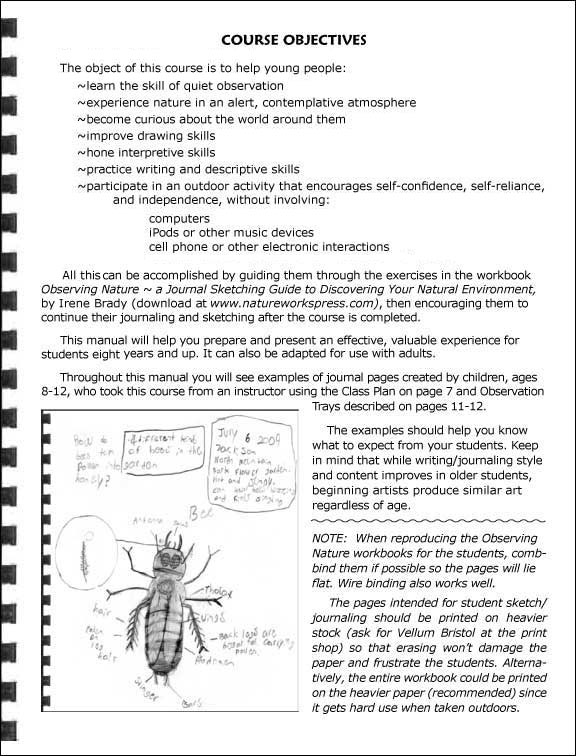 COURSE OBJECTIVES
The object of this course is to help young people:
~learn the skill of quiet observation
~experience nature in an alert, contemplative atmosphere
~become curious about the world around them
~improve drawing skills
~hone interpretive skills
~practice writing and descriptive skills
~participate in an outdoor activity that encourages self-confidence, self-reliance,
and independence, without involving:
computers
iPods or other music devices
cell phone or other electronic interactions
All this can be accomplished by guiding them through the exercises in the workbook
Observing Nature ~ a Journal Sketching Guide to Discovering Your Natural Environment,
by Irene Brady (download at www.natureworkspress.com), then encouraging them to
continue their journaling and sketching after the course is completed.
This manual will help you prepare and present an effective, valuable experience for
students eight years and up. It can also be adapted for use with adults.
Throughout this manual you will see examples of journal pages created by children, ages
8-12, who took this course from an instructor using the Class Plan on page 7 and Observation
Trays described on pages 11-12.
The examples should help you know
what to expect from your students. Keep
in mind that while writing/journaling style
and content improves in older students,
beginning artists produce similar art
regardless of age.
NOTE: When reproducing the Observing
Nature workbooks for the students, comb-
bind them if possible so the pages will lie
flat. Wire binding also works well.
The pages intended for student sketch/
journaling should be printed on heavier
stock (ask for Vellum Bristol at the print
shop) so that erasing won't damage the
paper and frustrate the students. Alterna-
tively, the entire workbook could be printed
on the heavier paper (recommended) since
it gets hard use when taken outdoors.
How do
bees turn
Pollen into
honey?
different kind
of bees in the
garden
July 6 2009
Jackson
North mountain
Park flower garden.
Hot and sunny.
and birds singing
Bee
Antenna
Thorax
Lungs
hair
Polen
on
leg
hair
Back legs are
for carrying
pollen.
Abdomen
Stinger